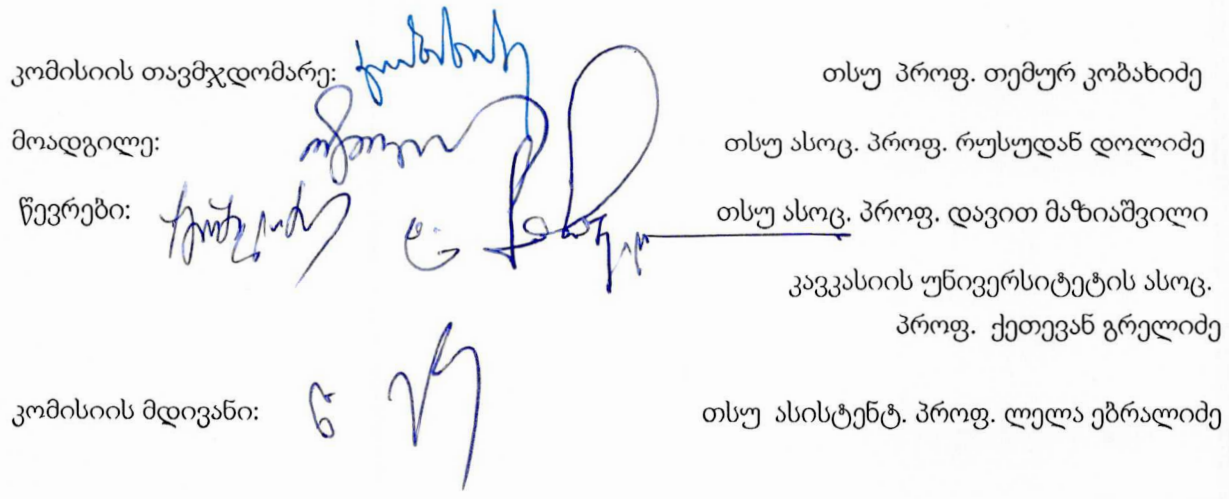 კომისიის თავმჯდომარე: თსუ პროფ. თემურ კობახიძე
მოადგილე: თსუ ასოც. პროფ. რუსუდან დოლიძე
წევრები: თსუ ასოც. პროფ. დავით მაზიაშვილი
კავკასიის უნივერსიტეტის ასოც.
პროფ. ქეთევან გრელიძე
კომისიის მდივანი: თსუ ასისტენტ. პროფ. ლელა ებრალიძე